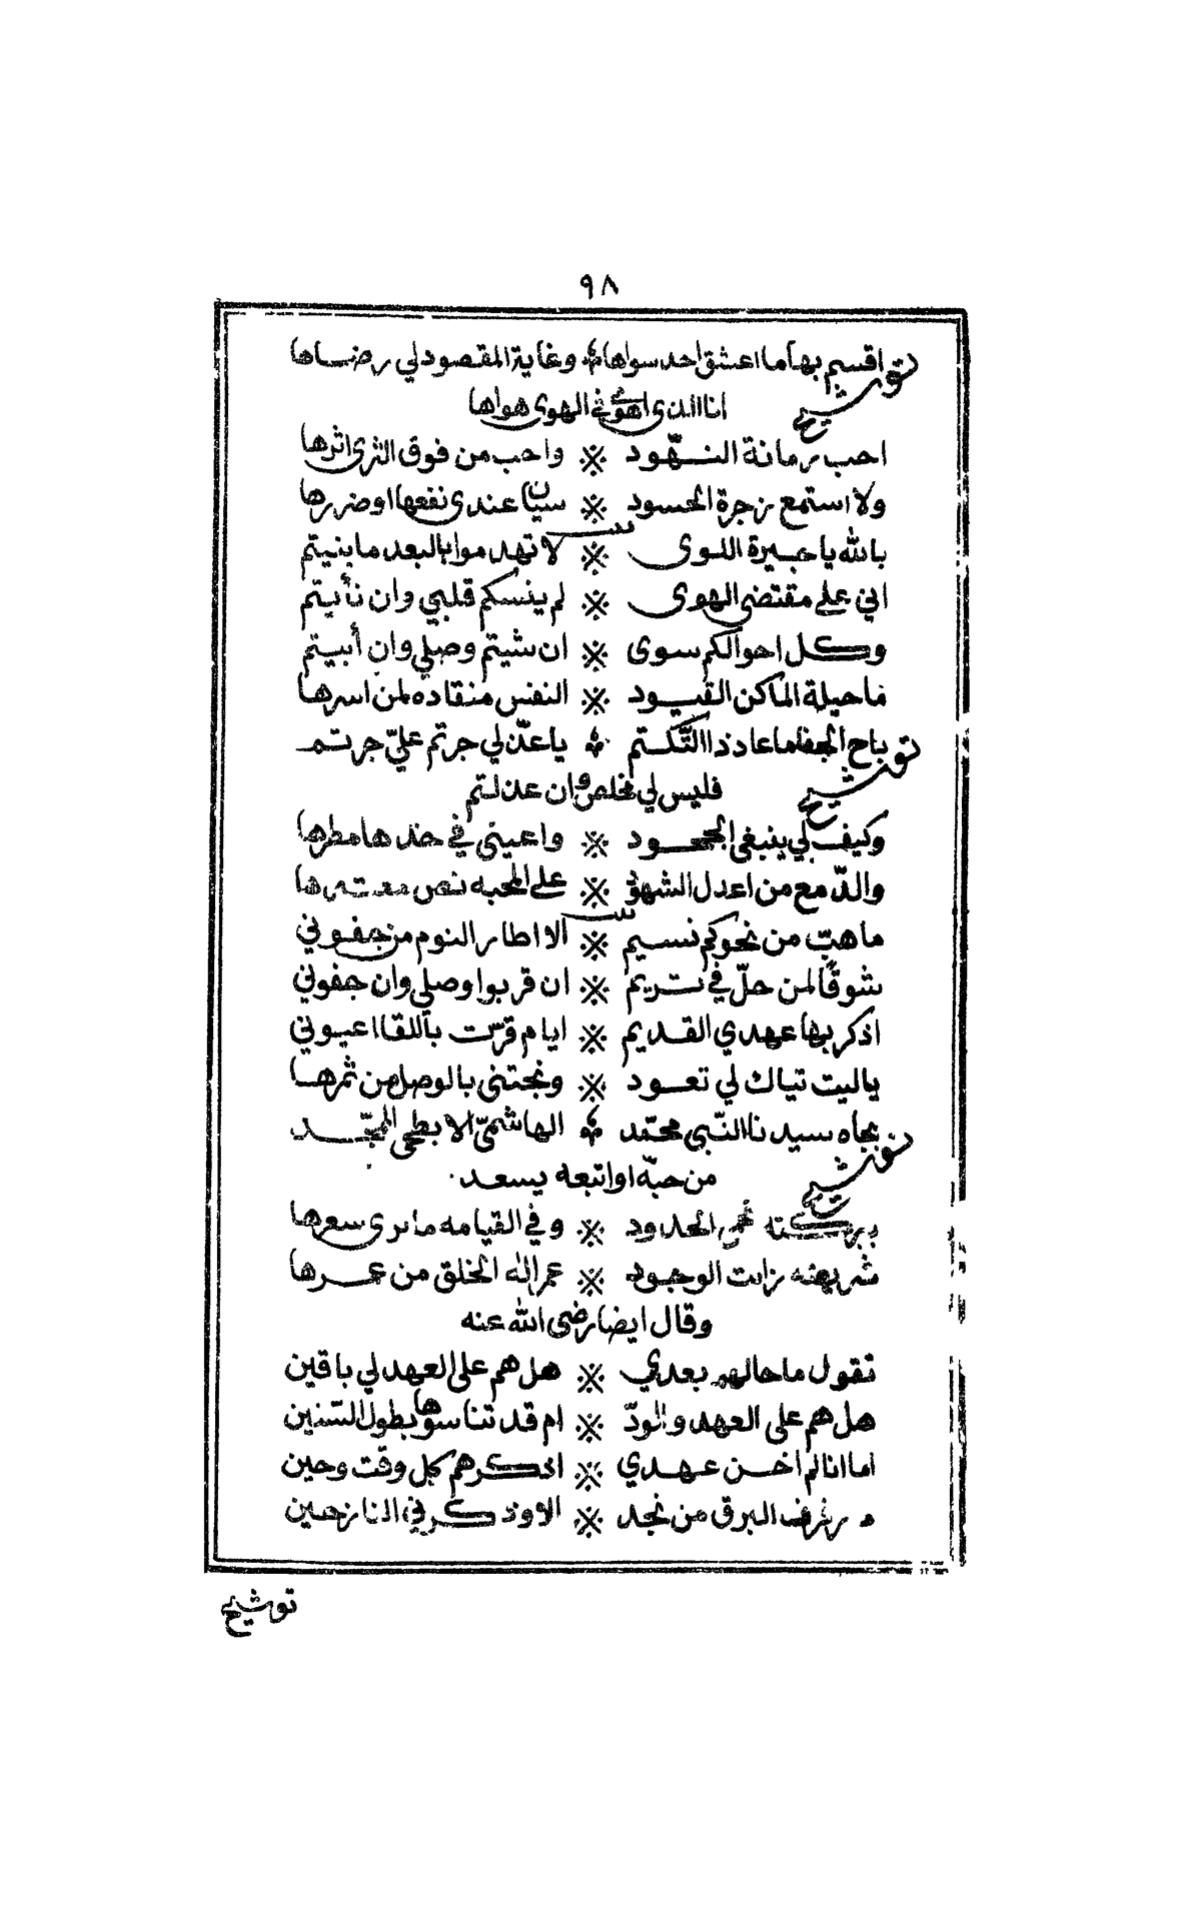 ٩٨
توشيح اقسم بها ما اعشق احد سواها ※ وغاية المقصود لي رضاها
انا الذي اهوى في الهوى هواها
احب رمانة النهّود ※ واحب من فوق الثرى اثرها
ولا استمع زجرة الحسود ※ سيان عندي نفعها او ضررها
بيت
بالله يا جيرة اللوى ※ لا تهدموا بالبعد ما بنيتم
اني على مقتضى الهوى ※ لم ينسكم قلبي وان نأيتم
وكل احوالكم سوى ※ ان شيتم وصلي وان أبيتم
ما حيلة الماكن القيود ※ النفس منقاده لمن اسرها
توشيح باح الجفا ما عاد ذا التّكتم ※ يا عذّلي جرتم عليّ جرتم
فليس لي مخلص وان عذلتم
وكيف لي ينبغي الجحود ※ واعيني في خدها مطرها
والدّمع من اعدل الشهود ※ على المحبه نص معتبرها
بيت
ما هبّ من نحوكم نسيم ※ الا اطار النوم من جفوني
شوقًا لمن حلّ في تريم ※ ان قربوا وصلي وان جفوني
اذكر بها عهدي القديم ※ ايام قرّت باللقا اعيوني
ياليت تياك لي تعود ※ ونجتني بالوصل من ثمرها
توشيح بجاه سيدنا النّبي محمّد ※ الهاشميّ الابطحي الممجّد
من حبّه او اتبعه يسعد
ببركته نحمي الحدود ※ وفي القيامه ما نرى سعرها
شريعته زانت الوجود ※ عمر اله الخلق من عمرها
وقال ايضا رضى الله عنه
تقول ما حالهم بعدي ※ هل هم على العهد لي باقين
هل هم على العهد والودّ ※ ام قد تناسوها بطول السّنين
اما انا لم أخن عهدي ※ اذكرهم كل وقت وحين
ما رفرف البرق من نجد ※ الا وذكرني النازحين
توشيح